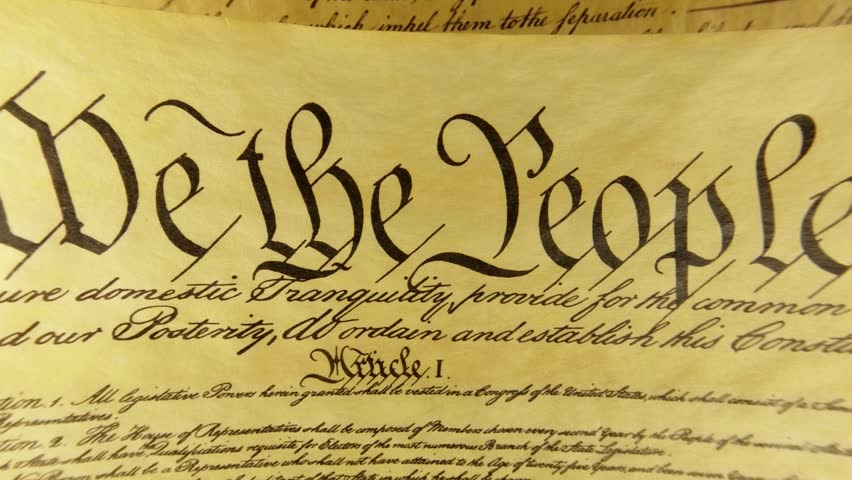 which impel them to the separation.
We the People
ure domestic Tranquility, provide for the common
d our Posterity, do ordain and establish this Constit
Article. I.
tion. 1. All legislative Powers herein granted shall be vested in a Congress of the United States, which shall consist of a Sen
Representatives.
tion. 2. The House of Representatives shall be composed of Members chosen every second Year by the People of the
h State shall have Qualifications requisite for Electors of the most numerous Branch of the State Legislature.
No Person shall be a Representative who shall not have attained to the Age of twenty five Years, and been seven
of that State in which he shall be